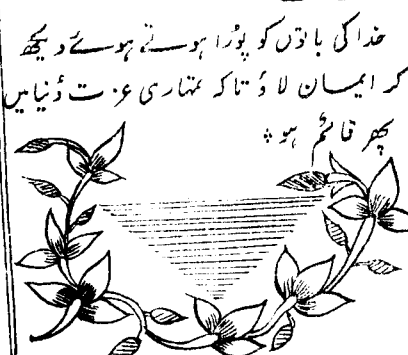 خدا کی باتوں کو پورا ہوتے ہوئے دیکھ
کر ایمان لاؤ تاکہ تمہاری عزت دُنیا میں
پھر قائم ہو ؞